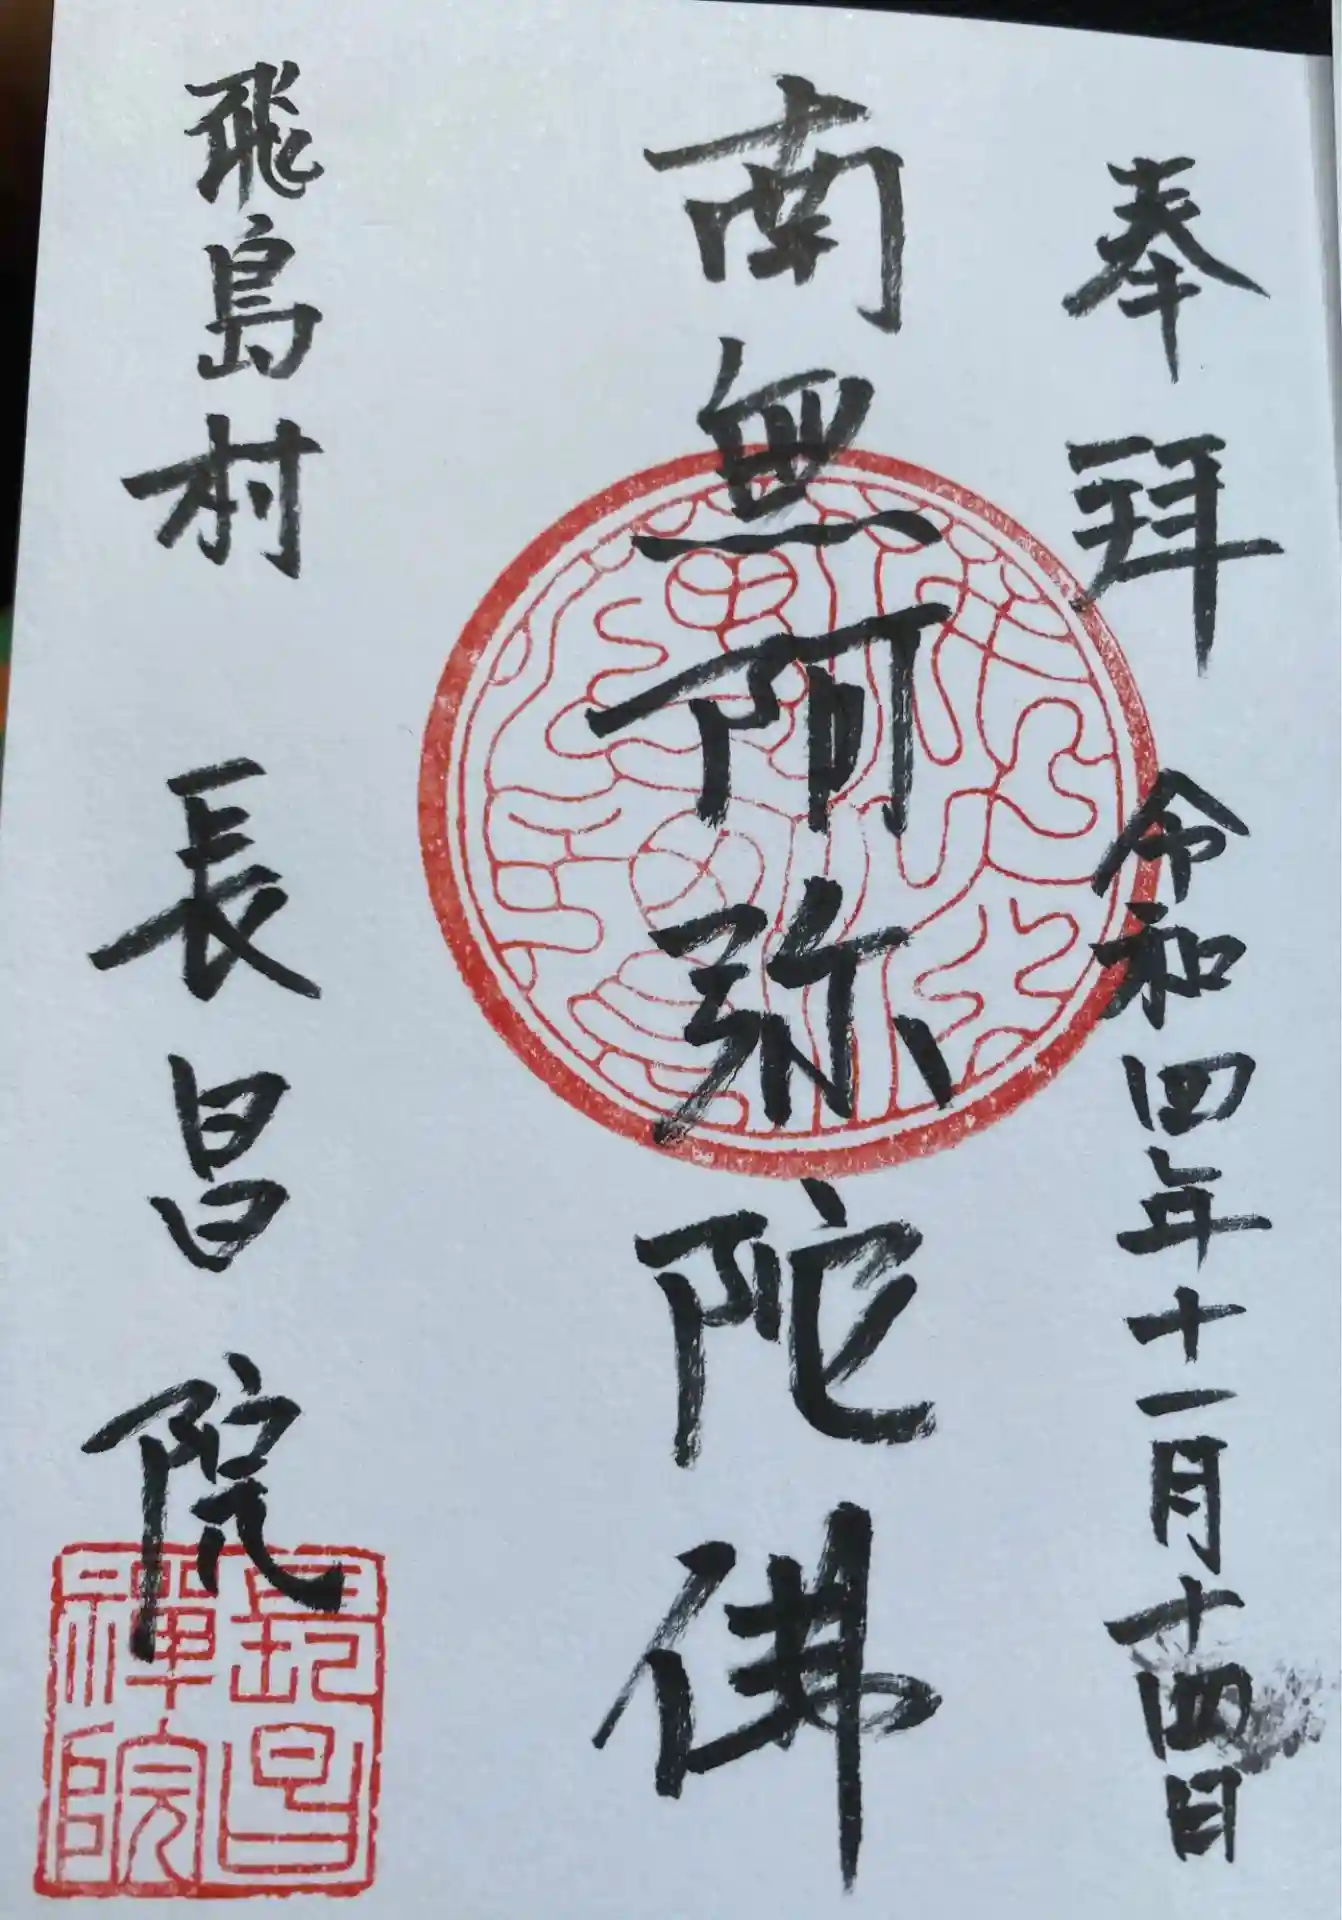 奉拜 令和四年十一月十四日
南無阿弥陀佛
飛島村 長昌院
長昌禪院